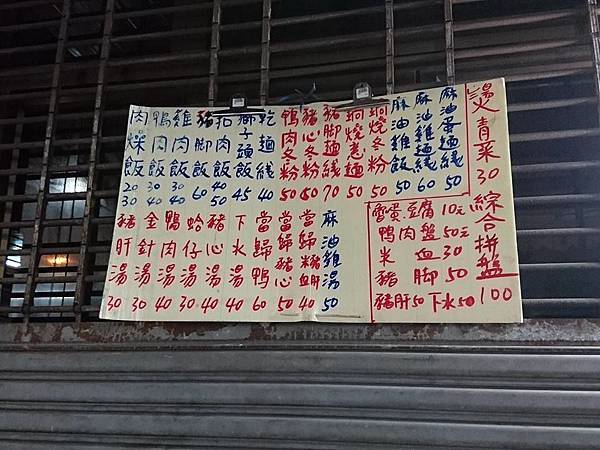 燙青菜30 綜合拼盤100
麻油蛋麵線 50
麻油雞麵線 60
麻油雞飯 50
鍋燒冬粉 50
鍋燒意麵 50
豬腳麵線 70
豬心冬粉 50
鴨肉冬粉 50
乾麵線 40
獅子頭飯 45
招肉飯 40
豬腳飯 60
雞肉飯 30 40
鴨肉飯 30 40
肉燥飯 20 30
皮蛋豆腐 10元
鴨肉盤 50元
米血 30
豬腳 50
豬肝50 下水50
麻油雞湯 50
當歸豬血 40
當歸豬心 50
當歸鴨 60
下水湯 40
豬心湯 40
蛤仔湯 30
鴨肉湯 40
金針湯 30
豬肝湯 30